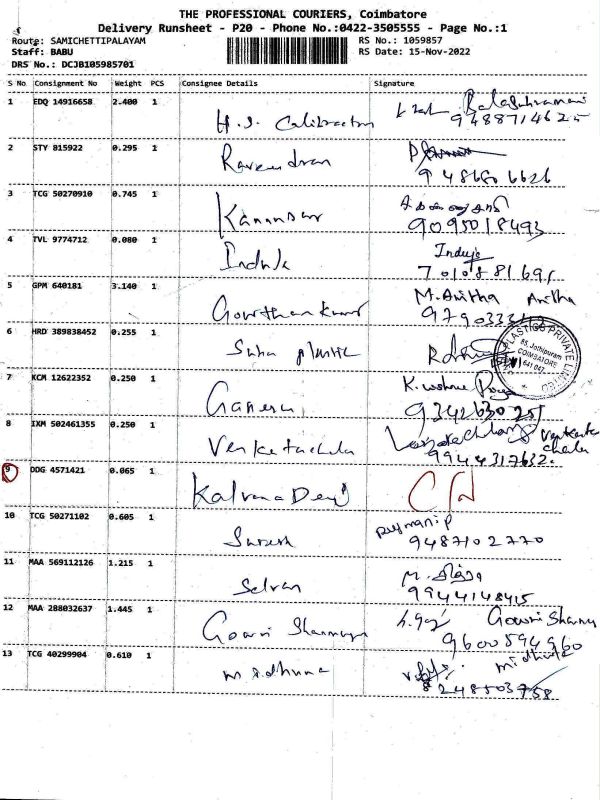 THE PROFESSIONAL COURIERS, Coimbatore
Delivery Runsheet - P20 - Phone No.:0422-3505555 - Page No.:1
Route: SAMICHETTIPALAYAM RS No.: 1059857
Staff: BABU RS Date: 15-Nov-2022
DRS No.: DCJB105985701
S No Consignment No Weight PCS Consignee Details Signature
1 EDQ 14916658 2.400 1
H.S. Calibration 9488714625
2 STY 815922 0.295 1
Raveendran 9486806626
3 TCG 50270910 0.745 1
9095018493
4 TVL 9774712 0.080 1 Induja
Induja 7010881691
5 GPM 640181 3.140 1 M.Anitha Anitha
Gowthan Kumar
6 HRD 389838452 0.255 1
Suba plastic
PLASTICS PRIVATE LIMITED
COIMBATORE
641 047
7 KCM 12622352 0.250 1
Ganesh 9342630251
8 IXM 502461355 0.250 1
Venketachala 9944317632
9 DDG 4571421 0.065 1
Kalpana Devi
10 TCG 50271102 0.605 1
Suresh 9487102770
11 MAA 569112126 1.215 1
Selvan 9944148415
12 MAA 288032637 1.445 1 Gowri
Gowri 9600594960
13 TCG 40299904 0.610 1
8248503758